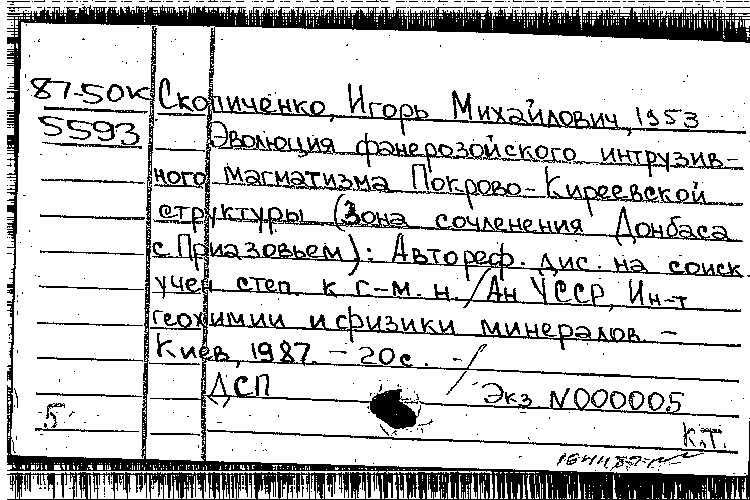 87-50к Скопиченко, Игорь Михайлович, 1953
5593 Эволюция фанерозойского интрузив-
ного магматизма Покрово-Киреевской
структуры (Зона сочленения Донбаса
с Приазовьем): Автореф. дис. на соиск.
учен степ. к г-м. н. / Ан УССР, Ин-т
геохимии и физики минералов. -
Киев, 1987. - 20с. -/
ДСП Экз N000005
5 К.Т.